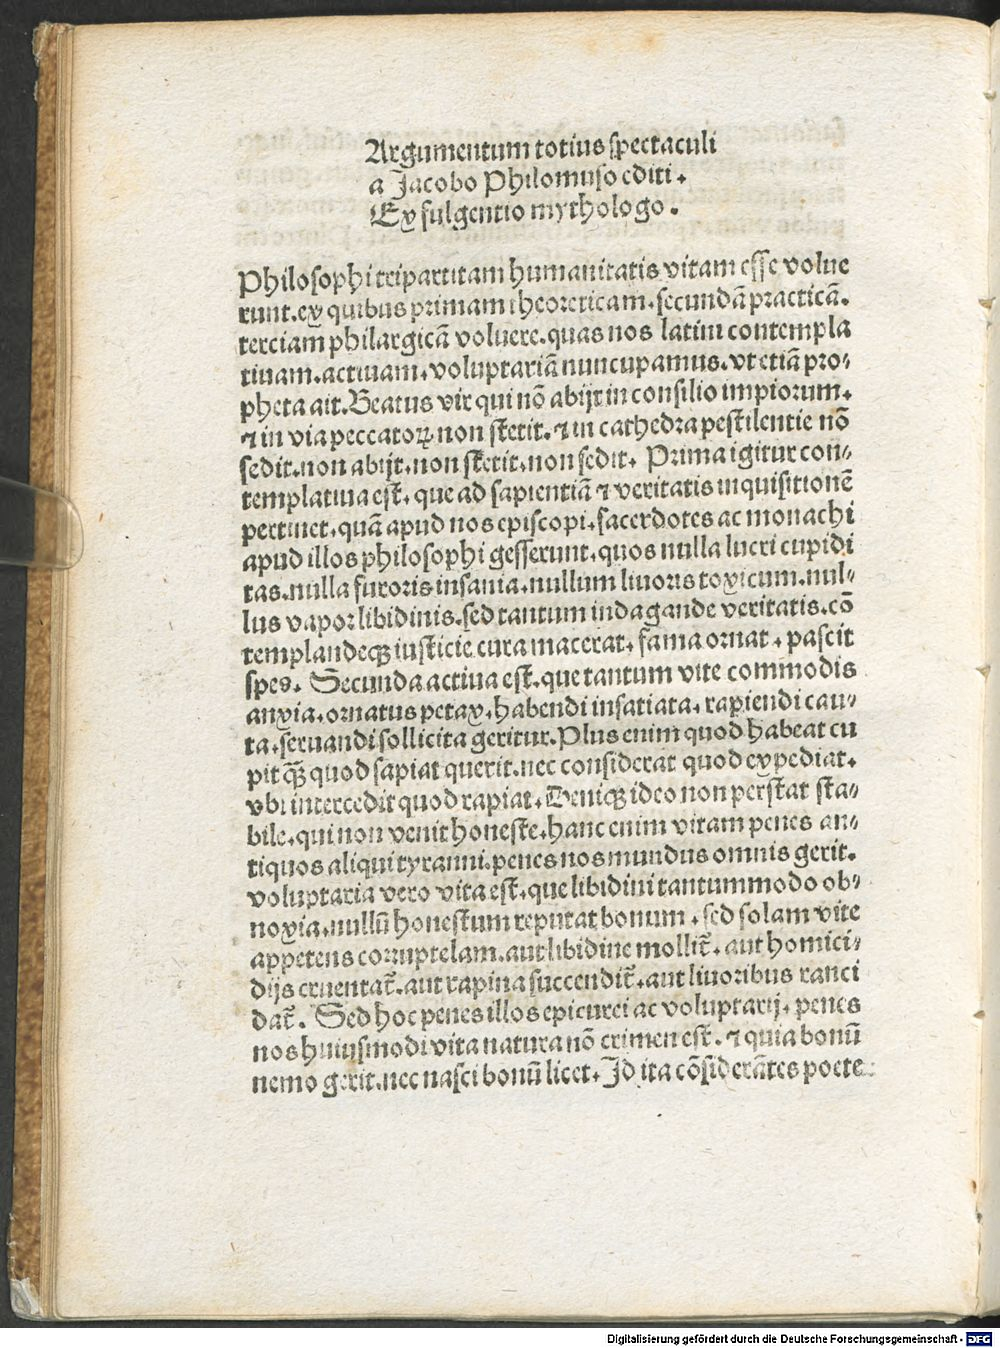 Argumentum totius spectaculi
a Jacobo Philomuso editi.
Ex fulgentio mythologo.
Philosophi tripartitam humanitatis vitam esse volue
runt. ex quibus primam theoreticam. secundā practicā.
terciam philargicā voluere. quas nos latini contempla
tiuam. actiuam. voluptariā nuncupamus. vt etiā pro-
pheta ait. Beatus vir qui nō abijt in consilio impiorum.
⁊ in via peccatoꝝ non stetit. ⁊ in cathedra pestilentie nō
sedit. non abijt. non stetit. non sedit. Prima igitur con-
templatiua est. que ad sapientiā ⁊ veritatis inquisitionē
pertinet. quā apud nos episcopi. sacerdotes ac monachi
apud illos philosophi gesserunt. quos nulla lucri cupidi
tas. nulla furoris insania. nullum liuoris toxicum. nul-
lus vapor libidinis. sed tantum indagande veritatis. cō
templandeqꝫ iusticie cura macerat. fama ornat. pascit
spes. Secunda actiua est. que tantum vite commodis
anxia. ornatus petax. habendi insatiata. rapiendi cau-
ta. seruandi sollicita geritur. Plus enim quod habeat cu
pit qꝫ̄ quod sapiat querit. nec considerat quod expediat.
vbi intercedit quod rapiat. Deniqꝫ ideo non perstat sta-
bile. qui non venit honeste. hanc enim vitam penes an-
tiquos aliqui tyranni. penes nos mundus omnis gerit.
voluptaria vero vita est. que libidini tantummodo ob-
noxia. nullū honestum reputat bonum. sed solam vite
appetens corruptelam. aut libidine mollit̄. aut homici-
dijs cruentat̄. aut rapina succendit̄. aut liuoribus ranci
dat̄. Sed hoc penes illos epicurei ac voluptarij. penes
nos huiusmodi vita natura nō crimen est. ⁊ quia bonū
nemo gerit. nec nasci bonū licet. Id ita cōsiderātes poete
Digitalisierung gefördert durch die Deutsche Forschungsgemeinschaft - DFG